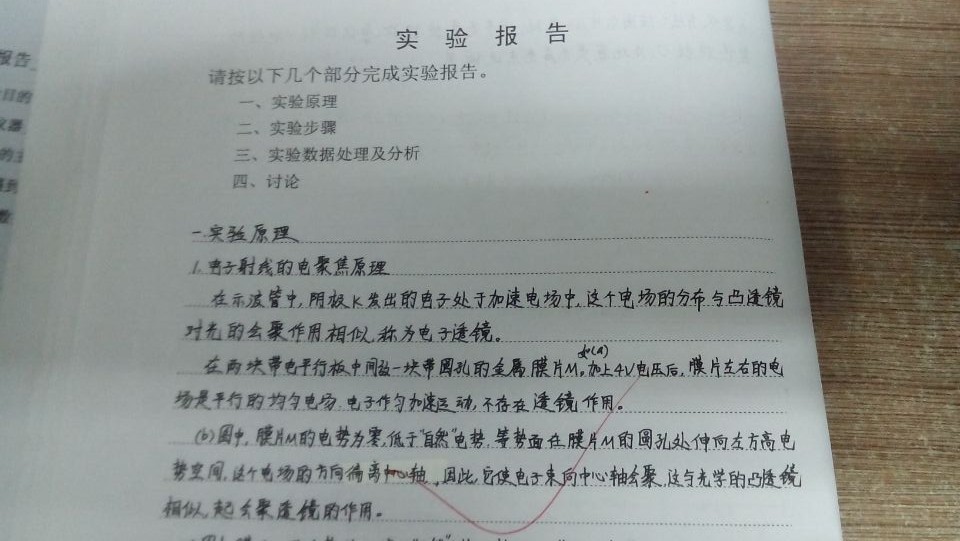 实 验 报 告
请按以下几个部分完成实验报告。
一、实验原理
二、实验步骤
三、实验数据处理及分析
四、讨论
一.实验原理
1.电子射线的电聚焦原理
在示波管中,阴极K发出的电子处于加速电场中,这个电场的分布与凸透镜
对光的会聚作用相似,称为电子透镜。
在两块带电平行板中间放一块带圆孔的金属膜片M。加上4V电压后,膜片左右的电
场是平行的均匀电场,电子作匀加速运动,不存在透镜作用。
(b)图中,膜片M的电势为零,低于"自然"电势,等势面在膜片M的圆孔处伸向左方高电
势空间,这个电场的方向偏离中心轴,因此,它使电子束向中心轴会聚,这与光学的凸透镜
相似,起会聚透镜的作用。
报告
目的
仪器